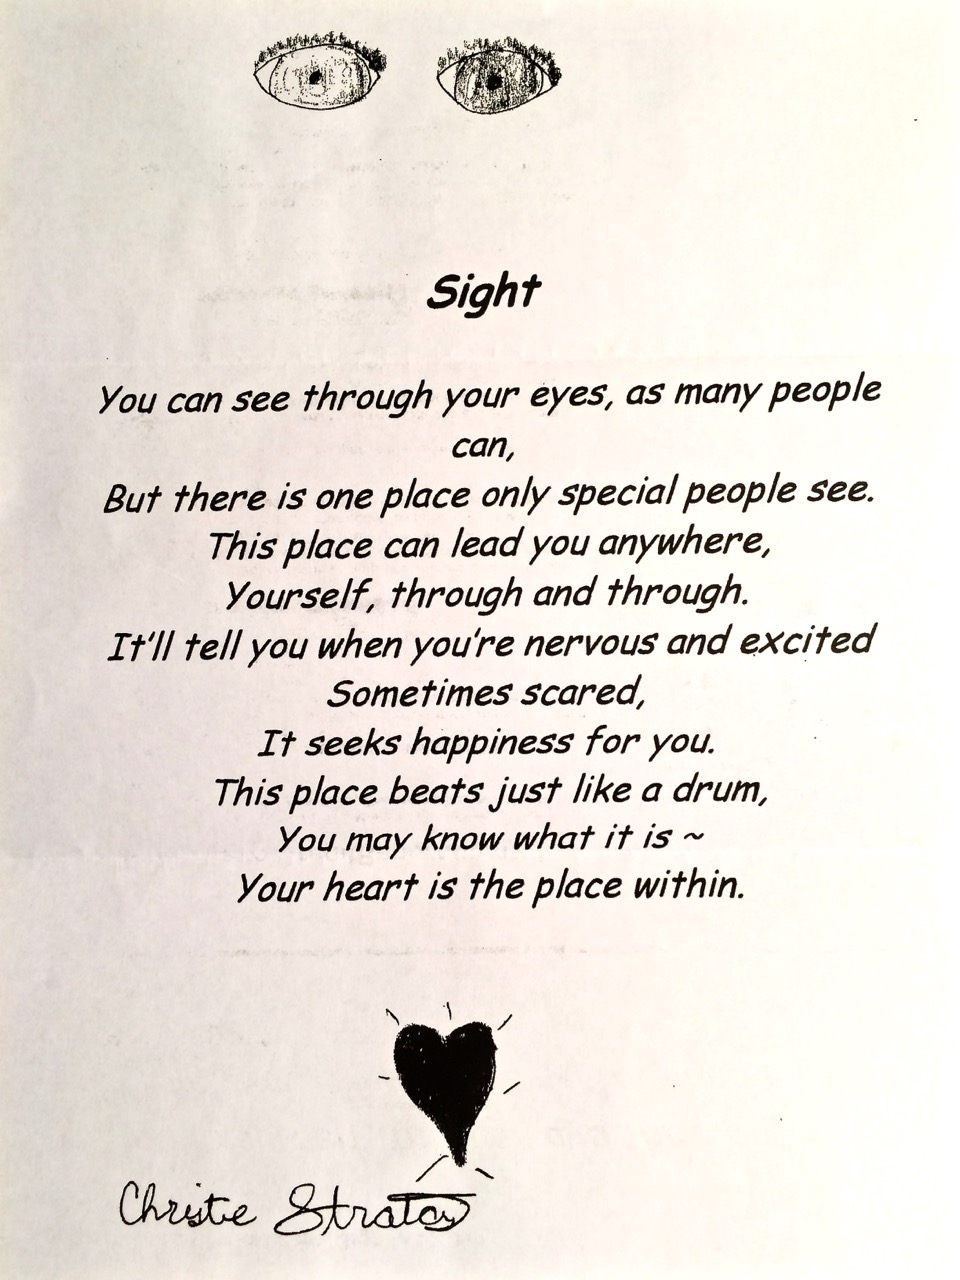 Sight
You can see through your eyes, as many people
can,
But there is one place only special people see.
This place can lead you anywhere,
Yourself, through and through.
It'll tell you when you're nervous and excited
Sometimes scared,
It seeks happiness for you.
This place beats just like a drum,
You may know what it is ~
Your heart is the place within.
Christie Stratos